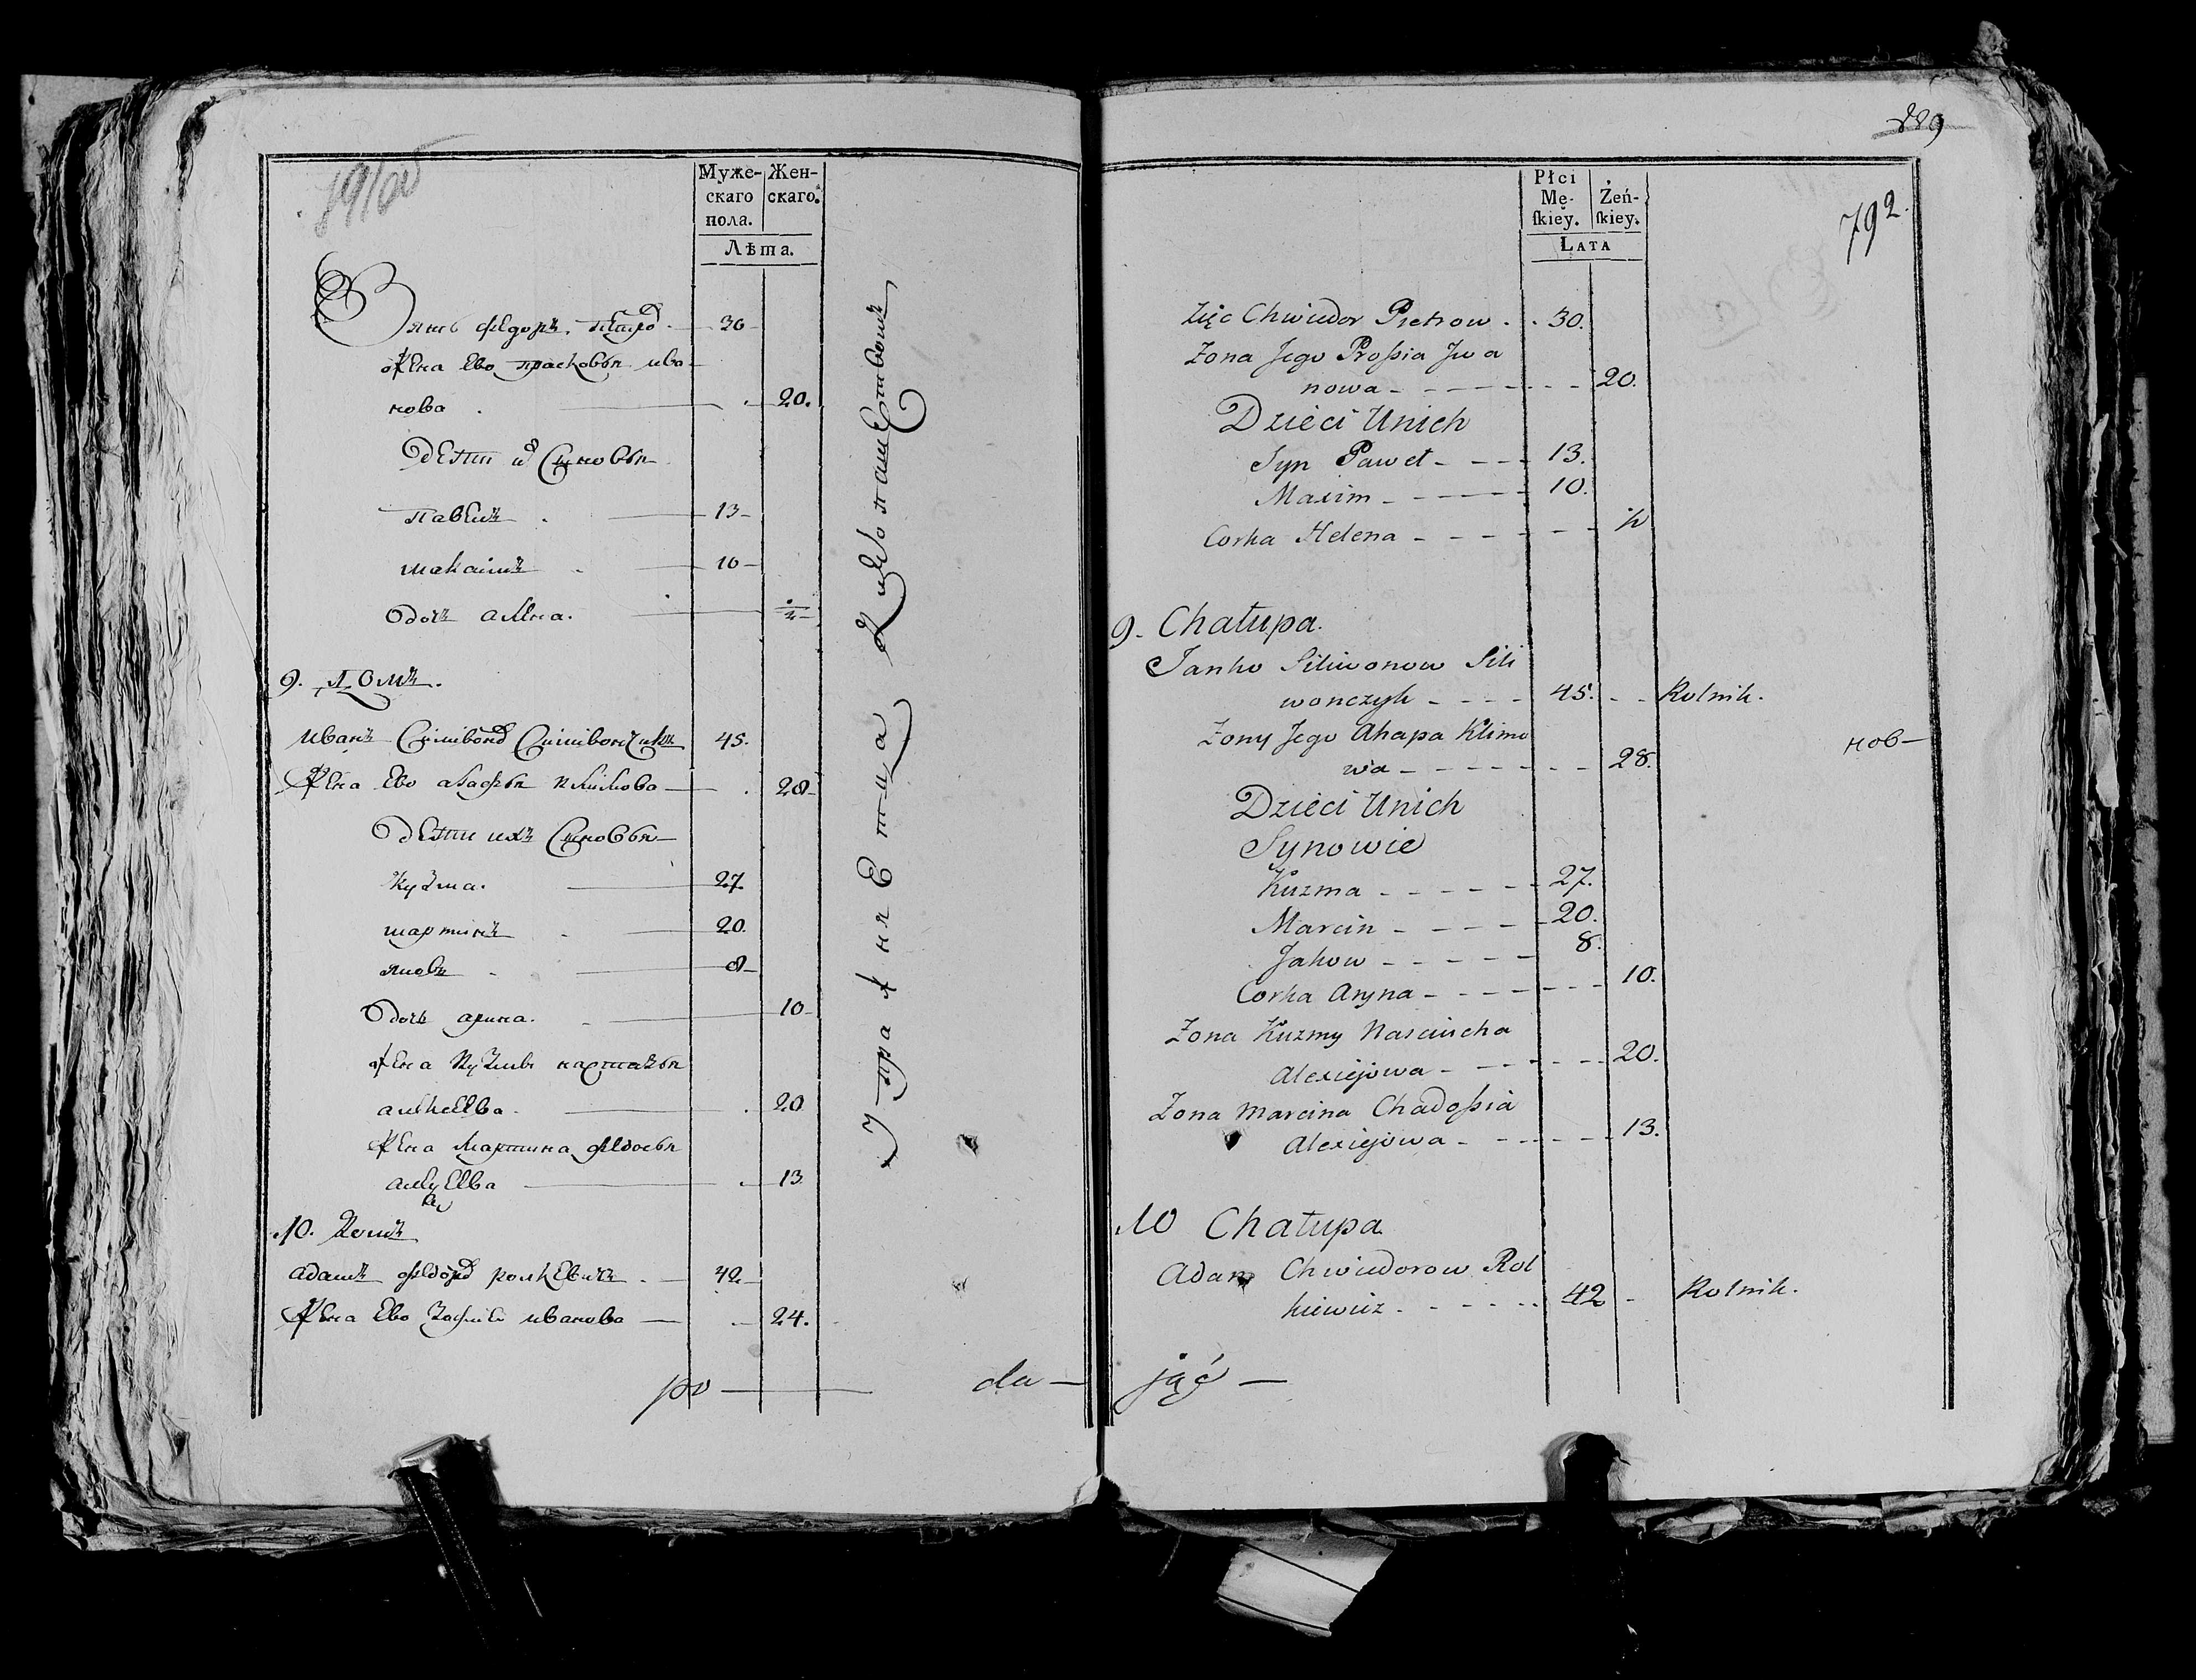 791об
Муже-
скаго
пола.
Жен-
скаго.
Лѣта.
Зять Федоръ Петро 30
жена Ево прасковья ива
нова 20.
Дети их Сыновья
Павелъ 13
макаимъ 10
Дочь алена. 1/2
9. Домъ.
иванъ Силивоно Силивончикъ 45.
Жена Ево агафья климова 28
Дети ихъ Сыновья
кузма. 27
мартинъ 20
яковъ 8
Дочь арина. 10
жена кузмы настазья
алексеева 20
Жена Мартина федосья
алексеева 13
10. Домъ
адамъ федоро ролкевичъ 42
Жена Ево зофия иванова 24.
Упражняется Хлебопашествомъ
po — da —
889
792.
Płci
Mę-
ſkiey.
Żeń-
ſkiey.
LATA
Zięc Chwiedor Pietrow 30.
Zona Jego Proßia Jwa
nowa 20.
Dzieci Unich
Syn Paweł 13.
Maxim 10.
Corka Helena ½
9. Chałupa.
Janko Siliwonow Sili
wonczyk 45. Rolnik.
Zony Jego Ahapa Klimo
wa 28.
нов—
Dzieci Unich
Synowie
Kuzma 27.
Marcin 20.
Jakow 8.
Corka Aryna 10.
Zona Kuzmy Nasciucha
Alexiejowa 20.
Zona Marcina Chadoßia
Alexiejowa 13.
10 Chałupa
Adam Chwiedorow Rol
kiewicz 42 Rolnik.
jąć —